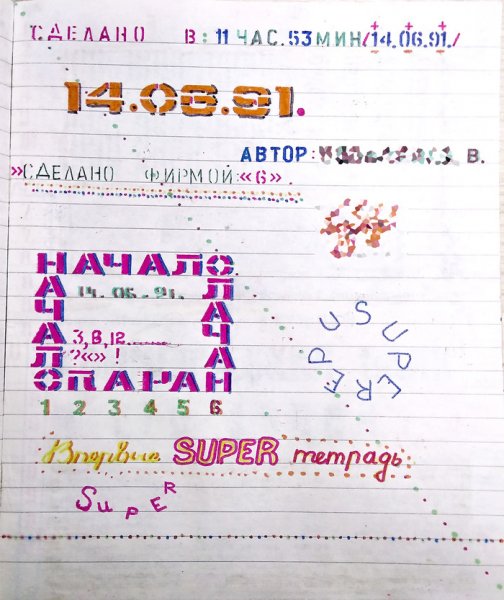 СДЕЛАНО В: 11 ЧАС. 53 МИН/14.06.91./
14.06.91.
АВТОР: В.
»СДЕЛАНО ФИРМОЙ:«6».
НАЧАЛО
А 14.06.91. Л
Ч А
А 3,8,12....... Ч
Л ?«» ! А
ОЛАЧАН
1 2 3 4 5 6
SUPERREPU
Впервые SUPER тетрадь.
SuPER